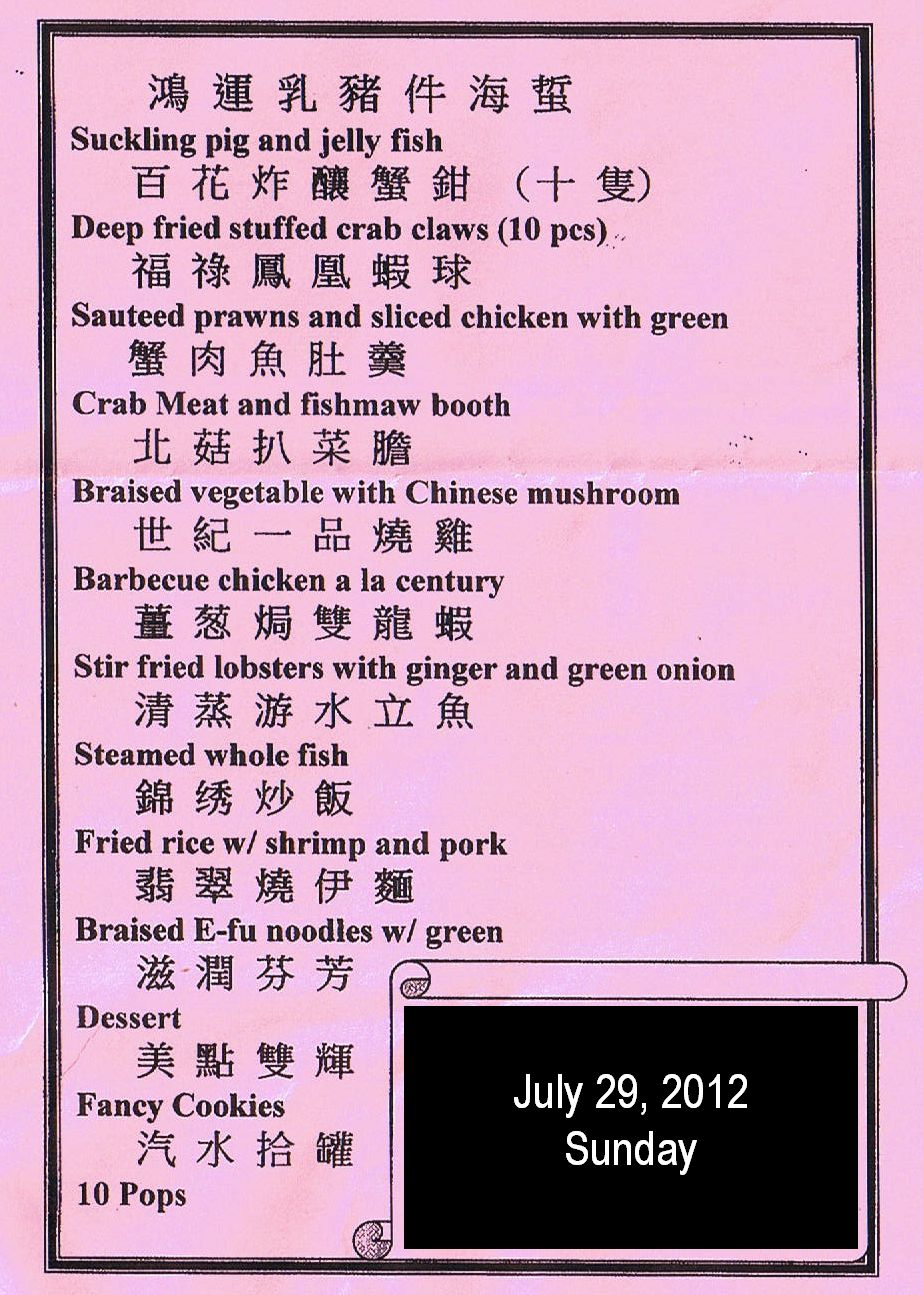 鴻運乳豬件海蜇
Suckling pig and jelly fish
百花炸釀蟹鉗 （十隻）
Deep fried stuffed crab claws (10 pcs)
福祿鳳凰蝦球
Sauteed prawns and sliced chicken with green
蟹肉魚肚羹
Crab Meat and fishmaw booth
北菇扒菜膽
Braised vegetable with Chinese mushroom
世紀一品燒雞
Barbecue chicken a la century
薑葱焗雙龍蝦
Stir fried lobsters with ginger and green onion
清蒸游水立魚
Steamed whole fish
錦绣炒飯
Fried rice w/ shrimp and pork
翡翠燒伊麵
Braised E-fu noodles w/ green
滋潤芬芳
Dessert
美點雙輝
Fancy Cookies
汽水拾罐
10 Pops
July 29, 2012
Sunday